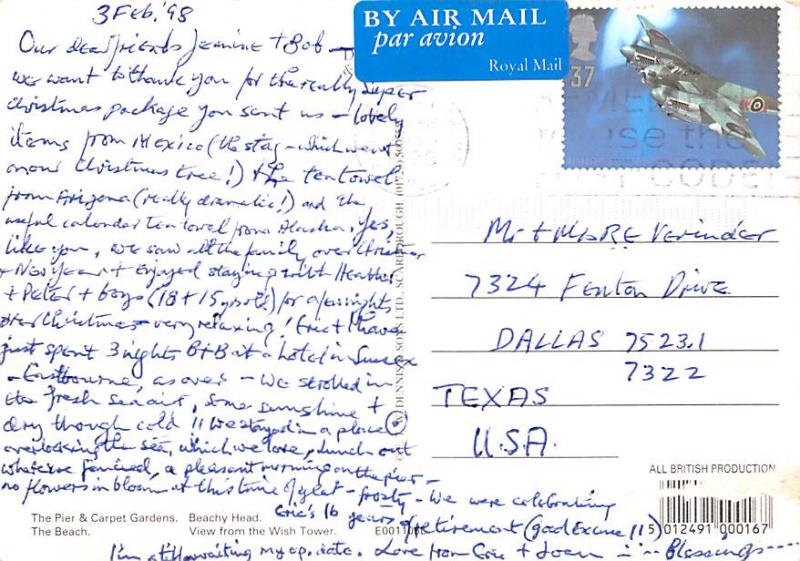 3 Feb, '98
Our dear friends Jeanine + Bob -
we want to thank you for the really super
Christmas package you sent us - lovely
items from Mexico (the stag - which went
on our Christmas tree!) + the tea towel
from Arizona (really dramatic!) and the
useful calendar tea towel from Alaska. Yes,
like you, we saw all the family over Christmas
+ New Year + enjoyed staying with Heather
+ Peter + boys (18 + 15 yrs old) for a few nights
over Christmas - very relaxing! Eric + I have
just spent 3 nights B+B at a hotel in Sussex
- Eastbourne, as over - We strolled in
the fresh sea air, some sunshine +
dry though cold !! We stayed in a place
overlooking the sea, which we love, lunch out
whatever fancied, a pleasant morning on the pier -
no flowers in bloom at this time of year - frosty - We were celebrating
Eric's 16 years of retirement (good excuse !!)
I'm still waiting my op. date. Love from Eric + Joan - Blessings
BY AIR MAIL
par avion
Royal Mail
37
use the
CODE!
Mr + Mrs R E
7324 Fenton Drive
DALLAS 75231
7322
TEXAS
U.S.A.
DENNIS & SONS LTD., SCARBOROUGH
ALL BRITISH PRODUCTION
5 012491 000167
The Pier & Carpet Gardens. Beachy Head.
The Beach. View from the Wish Tower.